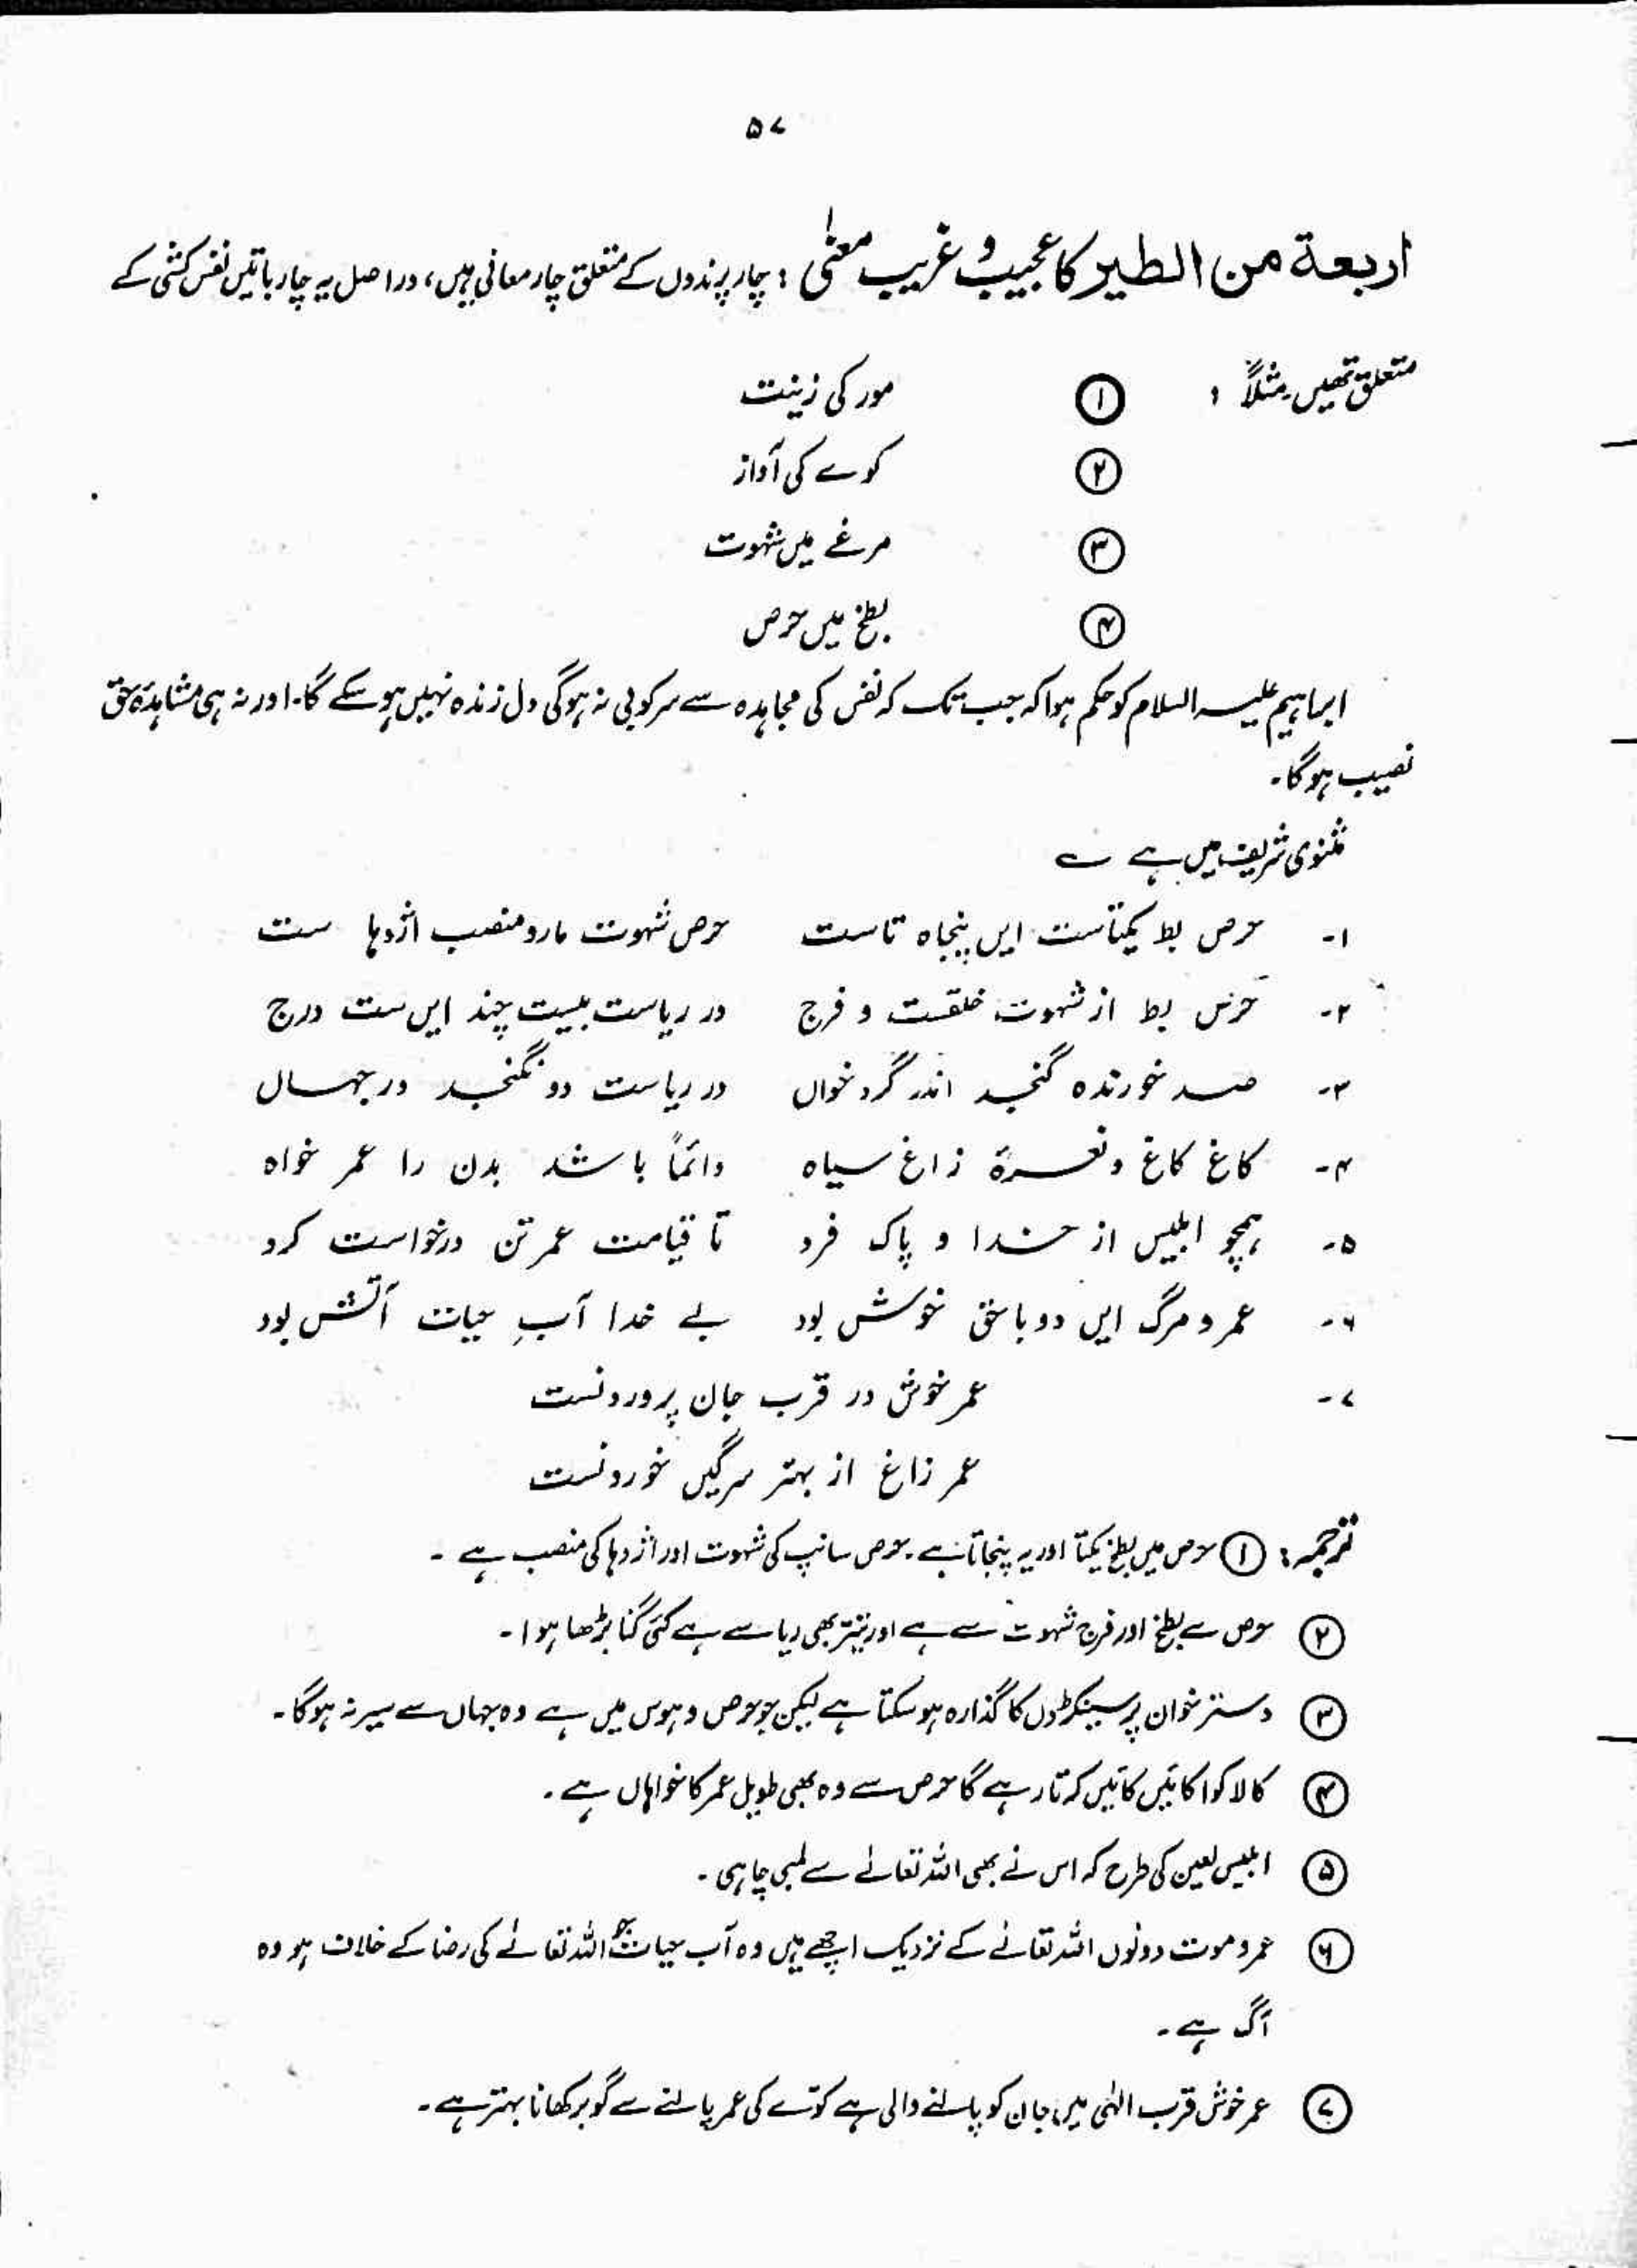 ۵۷
اربعة من الطیر کا عجیب و غریب معنٰی : چار پرندوں کے متعلق چار معانی ہیں، دراصل یہ چار باتیں نفس کشی کے
متعلق تھیں مثلاً : ① مور کی زینت
② کوے کی آواز
③ مرغے میں شہوت
④ بطخ میں حرص
ابراہیم علیہ السلام کو حکم ہوا کہ جب تک کہ نفس کی مجاہدہ سے سرکوبی نہ ہوگی دل زندہ نہیں ہو سکے گا۔ اور نہ ہی مشاہدۂ حق
نصیب ہوگا۔
مثنوی شریف میں ہے ؎
۱- حرص بط یکتاست ایں پنجاہ تاست حرص شہوت مارو منصب اژدہا ست
۲- حرص بط از شہوت خلقست و فرج در ریاست بیست چند ایں ست درج
۳- صد خورندہ گنجد اندر گرد خواں در ریاست دو نگنجد در جہاں
۴- کاغ کاغ و نعرۂ زاغ سیاہ دائماً باشد بدن را عمر خواہ
۵- ہمچو ابلیس از خدا و پاک فرد تا قیامت عمر تن درخواست کرد
۶- عمر و مرگ ایں دو با حق خوش بود بے خدا آبِ حیات آتش بود
۷- عمر خوش در قرب جان پروردنست
عمر زاغ از بہتر سرگیں خوردنست
ترجمہ : ① حرص میں بطخ یکتا اور یہ پنجاتا ہے۔ حرص سانپ کی شہوت اور اژدہا کی منصب ہے ۔
② حرص سے بطخ اور فرج شہوت سے ہے اور تیتر بھی ریا سے ہے کئی گنا بڑھا ہوا۔
③ دستر خوان پر سینکڑوں کا گذارہ ہو سکتا ہے لیکن جو حرص و ہوس میں ہے وہ جہاں سے سیر نہ ہوگا۔
④ کالا کوا کائیں کائیں کرتا رہے گا حرص سے وہ بھی طویل عمر کا خواہاں ہے ۔
⑤ ابلیس لعین کی طرح کہ اس نے بھی اللہ تعالےٰ سے لمبی چاہی ۔
⑥ عمر و موت دونوں اللہ تعالےٰ کے نزدیک اچھے ہیں وہ آب حیات جو اللہ تعالےٰ کی رضا کے خلاف ہو وہ
آگ ہے ۔
⑦ عمر خوش قرب الٰہی میں جان کو پالنے والی ہے کوّے کی عمر پالنے سے گوبر کھانا بہتر ہے ۔